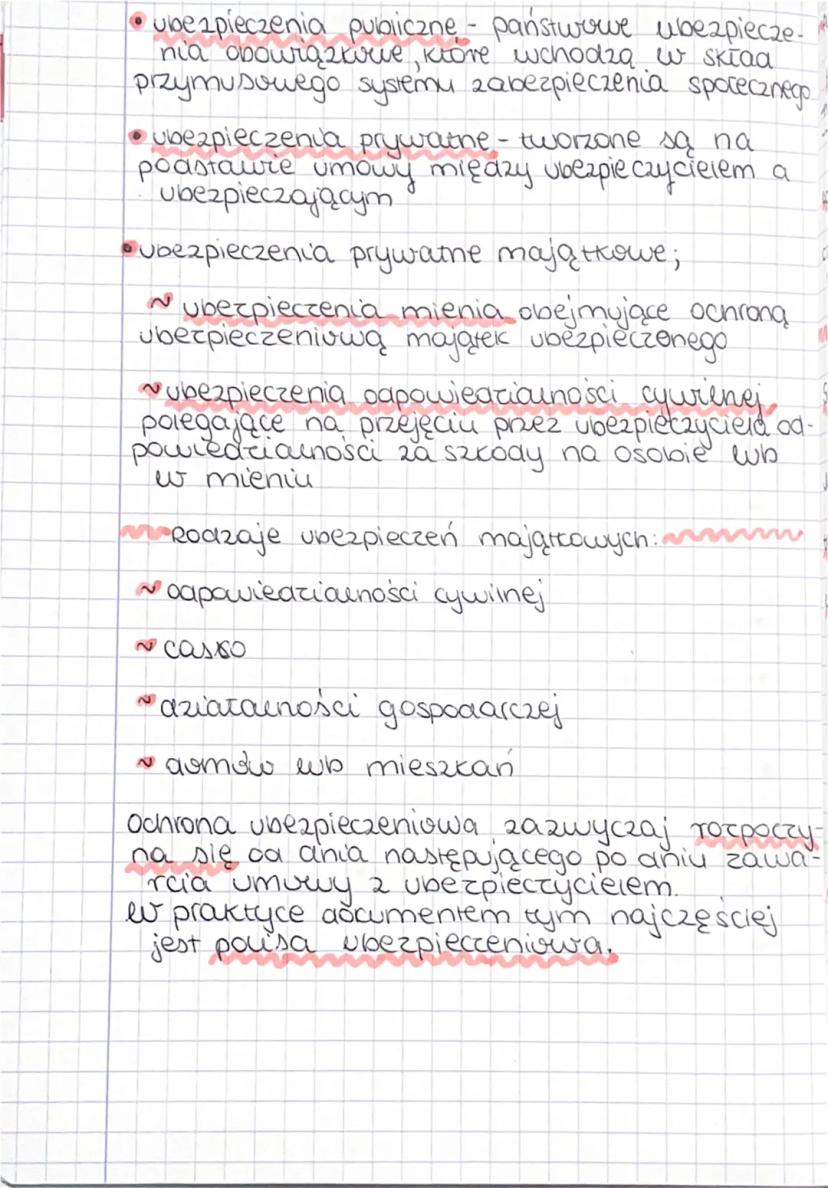 • ubezpieczenia publiczne - państwowe ubezpiecze-
nia obowiązkowe, które wchodzą w skład
przymusowego systemu zabezpieczenia społecznego
• ubezpieczenia prywatne - tworzone są na
podstawie umowy między ubezpieczycielem a
ubezpieczającym
• ubezpieczenia prywatne majątkowe;
~ ubezpieczenia mienia obejmujące ochroną
ubezpieczeniową majątek ubezpieczonego
~ ubezpieczenia odpowiedzialności cywilnej
polegające na przejęciu przez ubezpieczyciela od-
powiedzialności za szkody na osobie lub
w mieniu
Rodzaje ubezpieczeń majątkowych:
~ odpowiedzialności cywilnej
~ casko
~ działalności gospodarczej
~ domów lub mieszkań
Ochrona ubezpieczeniowa zazwyczaj rozpoczy-
na się od dnia następującego po dniu zawa-
rcia umowy z ubezpieczycielem.
W praktyce documentem tym najczęściej
jest polisa ubezpieczeniowa.